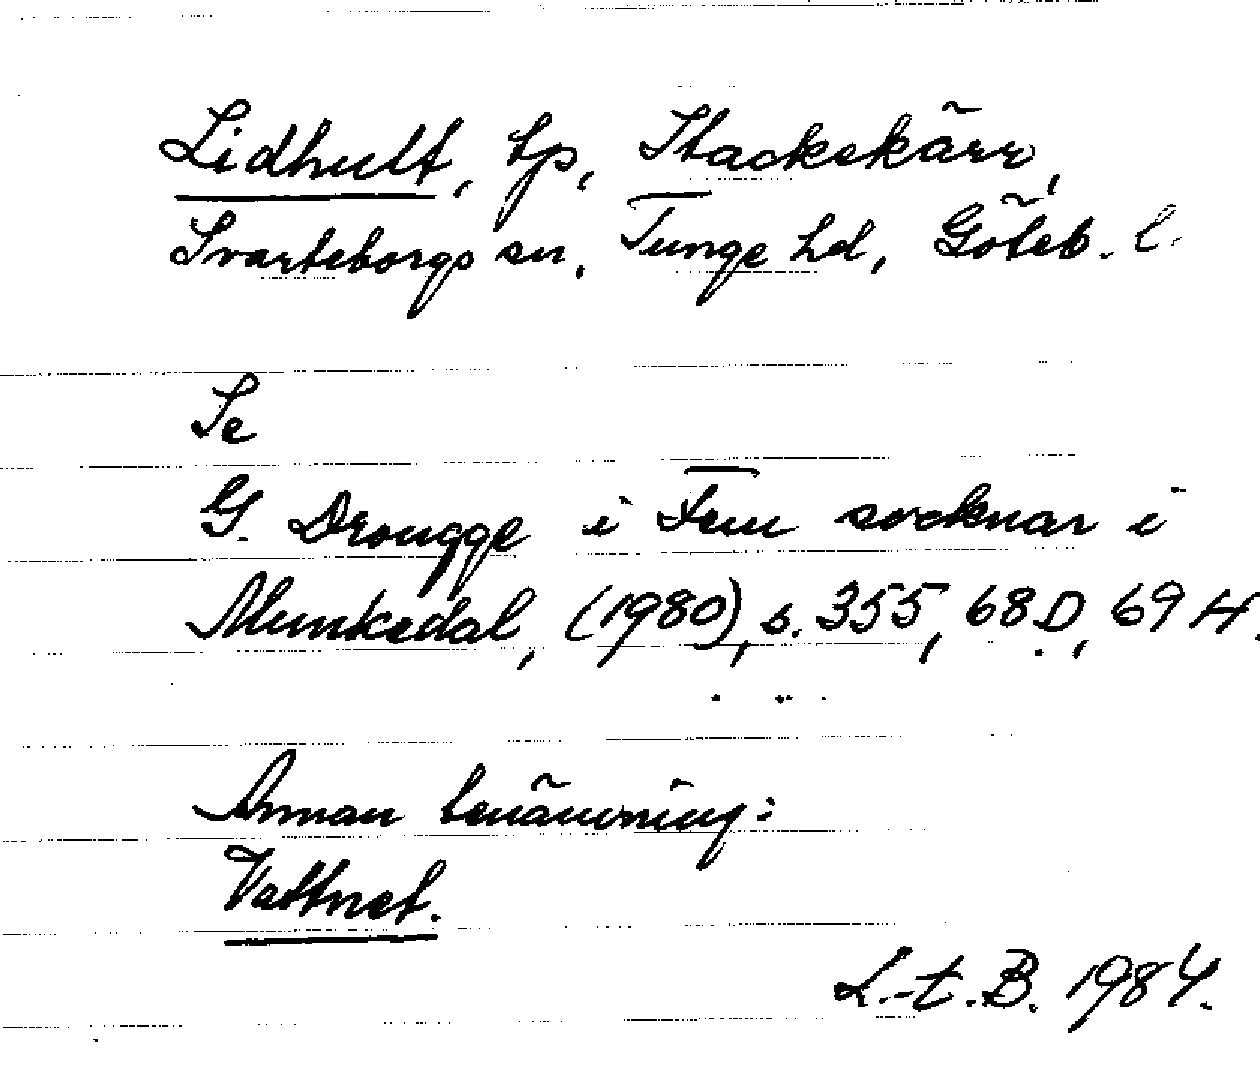 Lidhult, tp, Stackekärr,
Svarteborgs sn, Tunge hd, Göteb. l.
Se
G. Drougge i Fem socknar i
Munkedal, (1980), s. 355, 68 D, 69 H.
Annan benämning:
Vattnet.
L.-t. B. 1984.